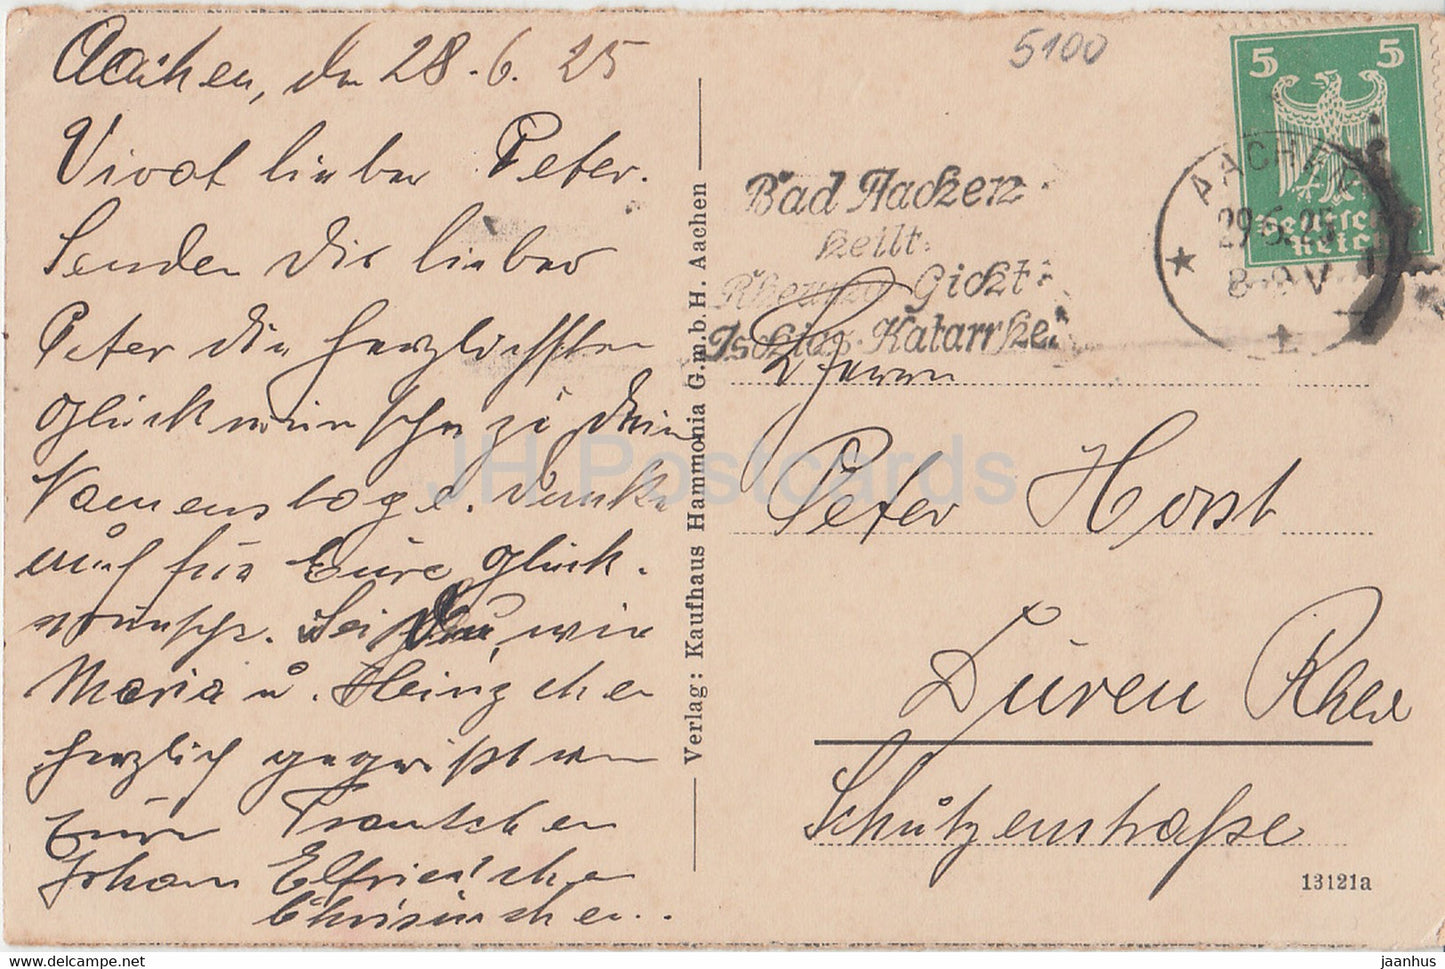 Aachen, den 28.6.25
Vivat lieber Peter.
Senden Dir lieber
Peter die herzlichsten
Glückwünsche zu Dein
Namenstage. Danke
auch für Eure Glück-
wünsche. Sei Du, wie
Maria u. Heinzchen
herzlich gegrüßt von
Eure Trautchen
Johann Elfriedchen
Christinchen..
Verlag: Kaufhaus Hammonia G.m.b.H. Aachen
5100
5 5
Deutsches
Reich
AACHEN
29.6.25
8-9V
Bad Aachen
heilt
Rheuma Gicht
Ischias Katarrhe
Herrn
Peter Horst
Düren Rhld
Schützenstraße
13121a
JH Postcards
jaanhus